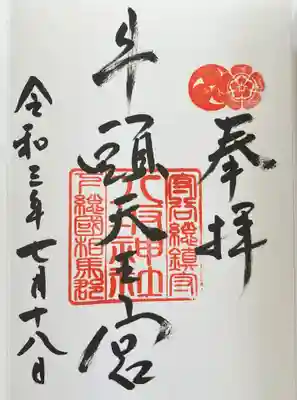 奉拝
牛頭天王宮
守谷総鎮守
八坂神社
下総國相馬郡
令和三年七月十八日